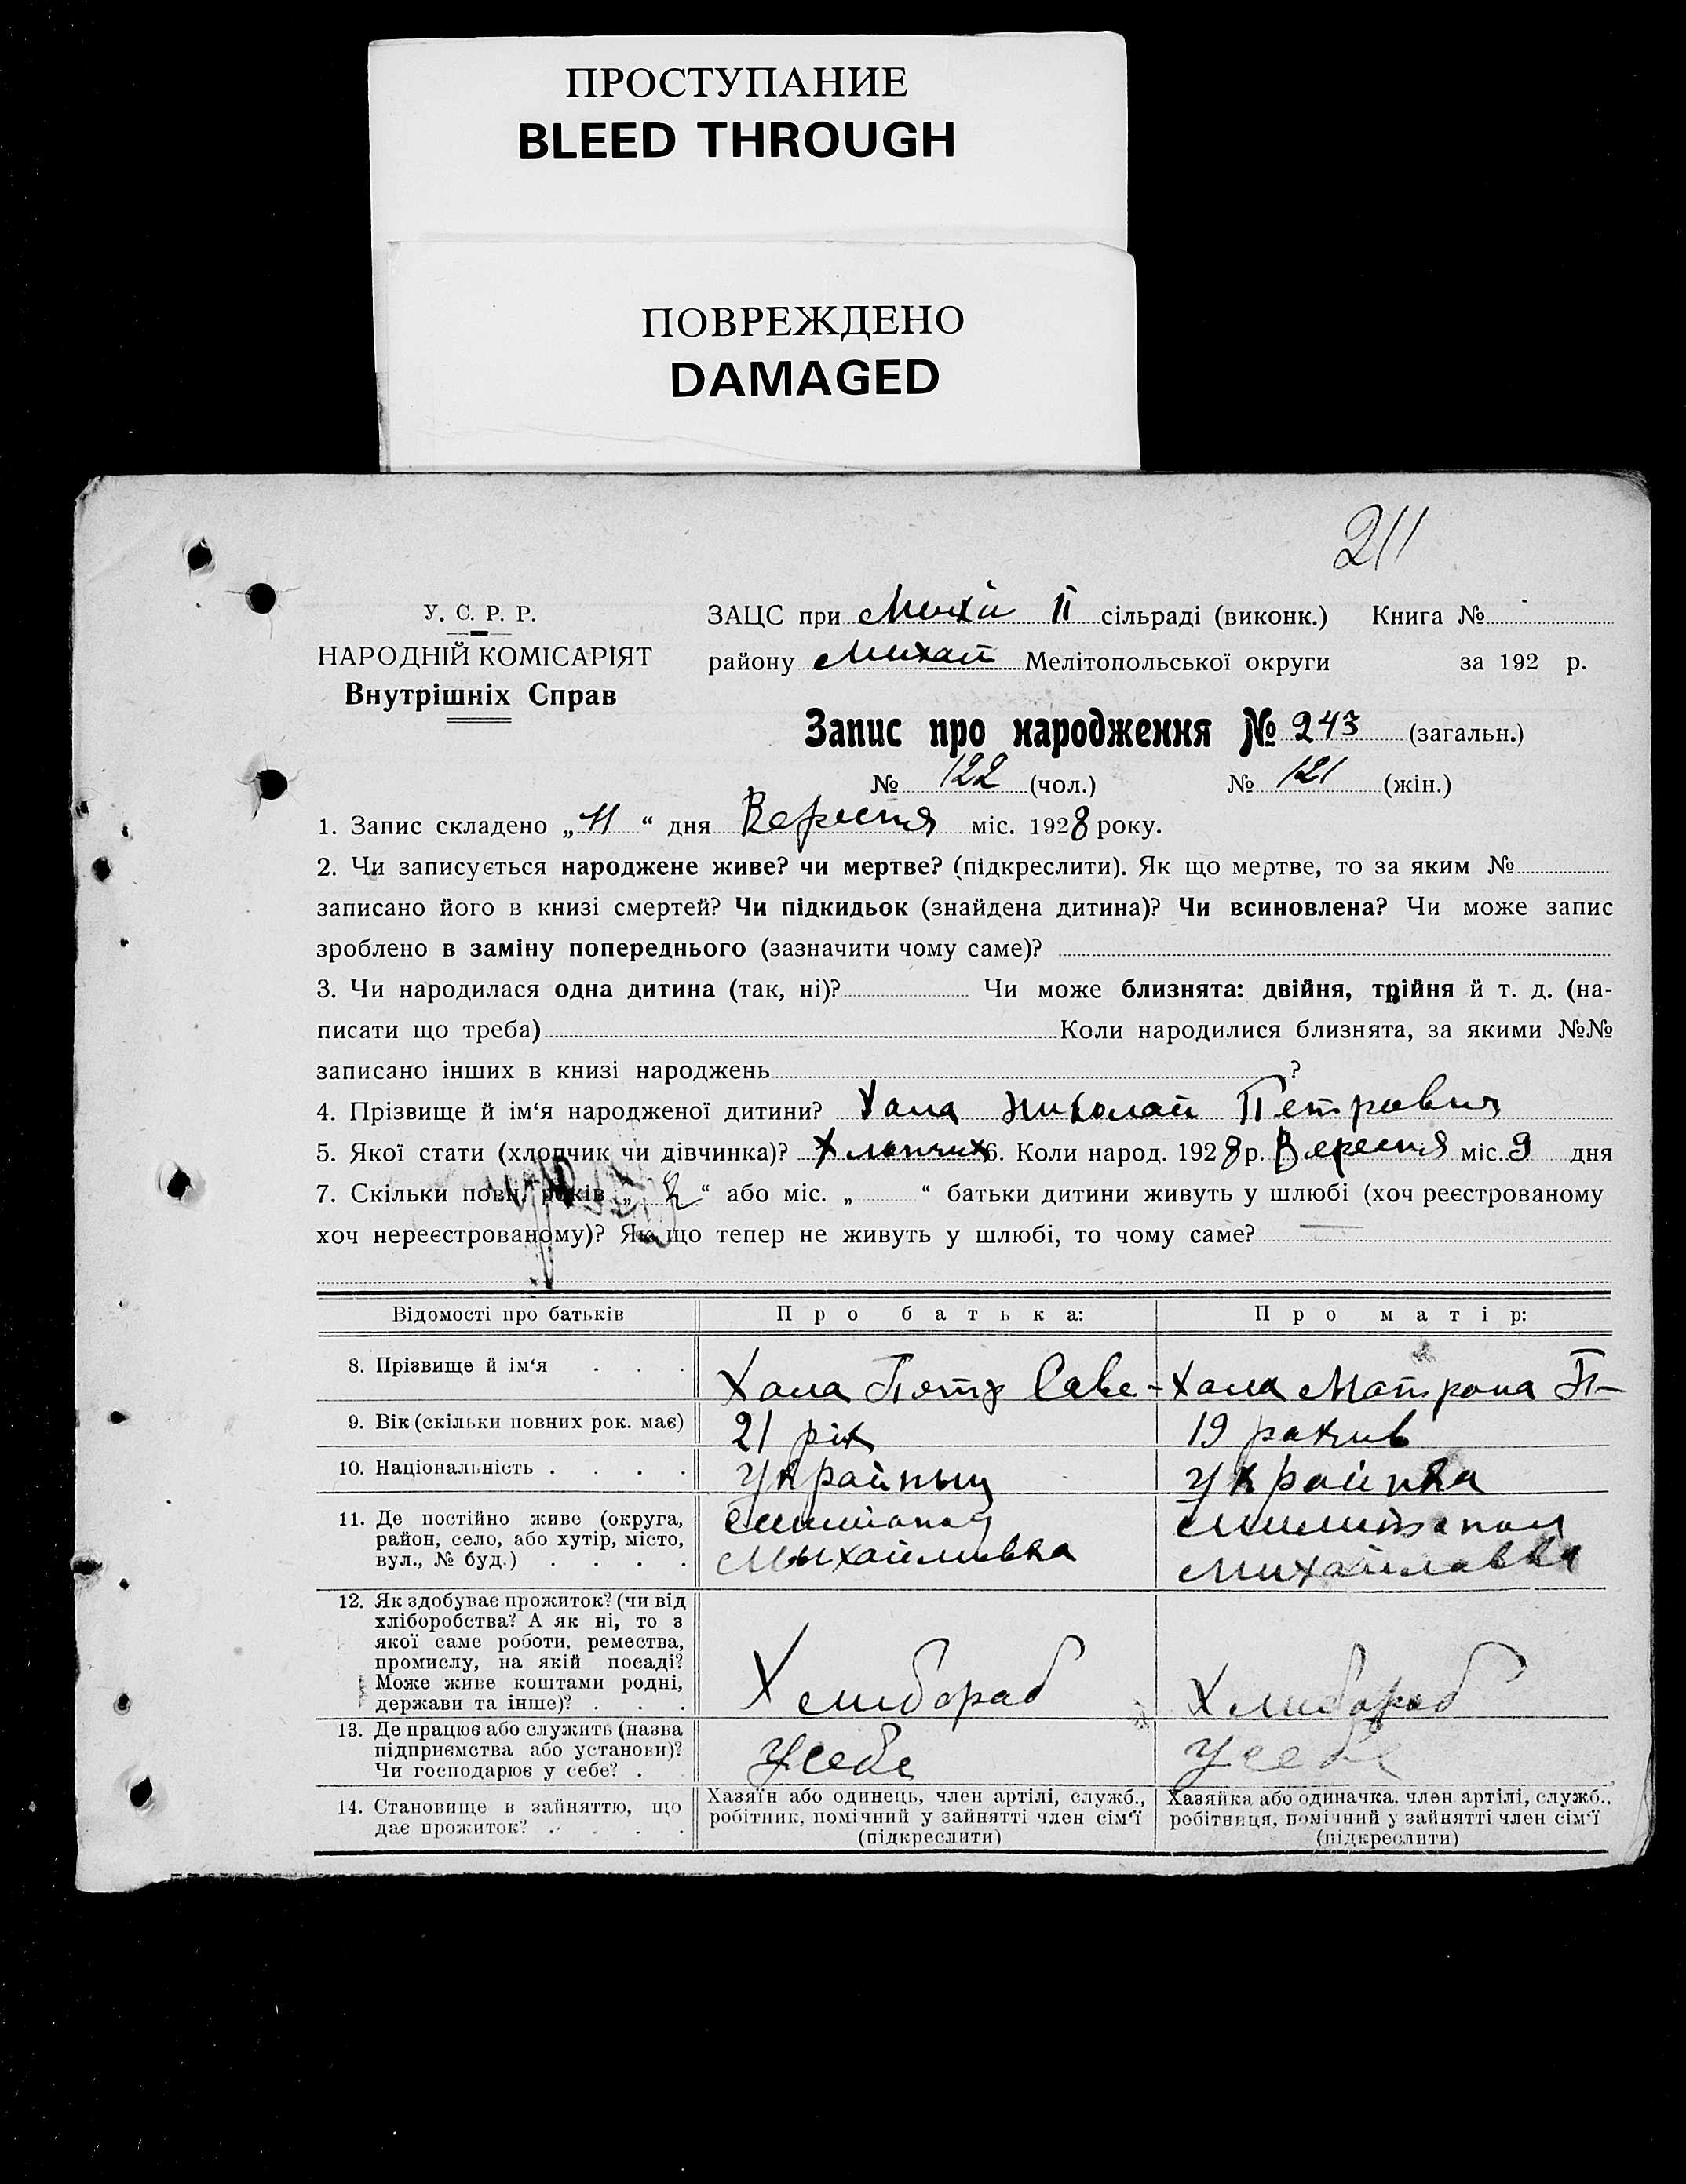 ПРОСТУПАНИЕ
BLEED THROUGH
ПОВРЕЖДЕНО
DAMAGED
211
У. С. Р. Р.
НАРОДНІЙ КОМІСАРІЯТ
Внутрішніх Справ
ЗАЦС при Михай II сільраді (виконк.) Книга №
району Михай Мелітопольської округи за 192 р.
Запис про народження № 243 (загальн.)
№ 122 (чол.) № 121 (жін.)
1. Запис складено „11“ дня Вересня міс. 1928 року.
2. Чи записується народжене живе? чи мертве? (підкреслити). Як що мертве, то за яким №
записано його в книзі смертей? Чи підкидьок (знайдена дитина)? Чи всиновлена? Чи може запис
зроблено в заміну попереднього (зазначити чому саме)?
3. Чи народилася одна дитина (так, ні)? Чи може близнята: двійня, трійня й т. д. (на-
писати що треба) Коли народилися близнята, за якими №№
записано інших в книзі народжень ?
4. Прізвище й ім‘я народженої дитини? Хала Николай Петрович
5. Якої стати (хлопчик чи дівчинка)? Хлопчик 6. Коли народ. 1928 р. Вересня міс. 9 дня
7. Скільки повн. років „ 2 “ або міс. „ “ батьки дитини живуть у шлюбі (хоч реєстрованому
хоч нереєстрованому)? Як що тепер не живуть у шлюбі, то чому саме?
Відомості про батьків Про батька: Про матір:
8. Прізвище й ім‘я . . . Хала Пётр Саве- Хала Матрона П-
9. Вік (скільки повних рок. має) 21 рік 19 рокив
10. Національність . . . . Украйныц Украйнка
11. Де постійно живе (округа,
район, село, або хутір, місто,
вул., № буд.) . . . .
Мыхайливка
Милитопол
Михайлавка
12. Як здобуває прожиток? (чи від
хліборобства? А як ні, то з
якої саме роботи, ремества,
промислу, на якій посаді?
Може живе коштами родні,
держави та інше)? . . .
Хлибораб Хлибораб
13. Де працює або служить (назва
підприємства або установи)?
Чи господарює у себе? .
Усебе Усебе
14. Становище в зайняттю, що
дає прожиток? . . . .
Хазяїн або одинець, член артілі, служб.,
робітник, помічний у зайнятті член сім‘ї
(підкреслити)
Хазяйка або одиначка, член артілі, служб.,
робітниця, помічний у зайнятті член сім‘ї
(підкреслити)